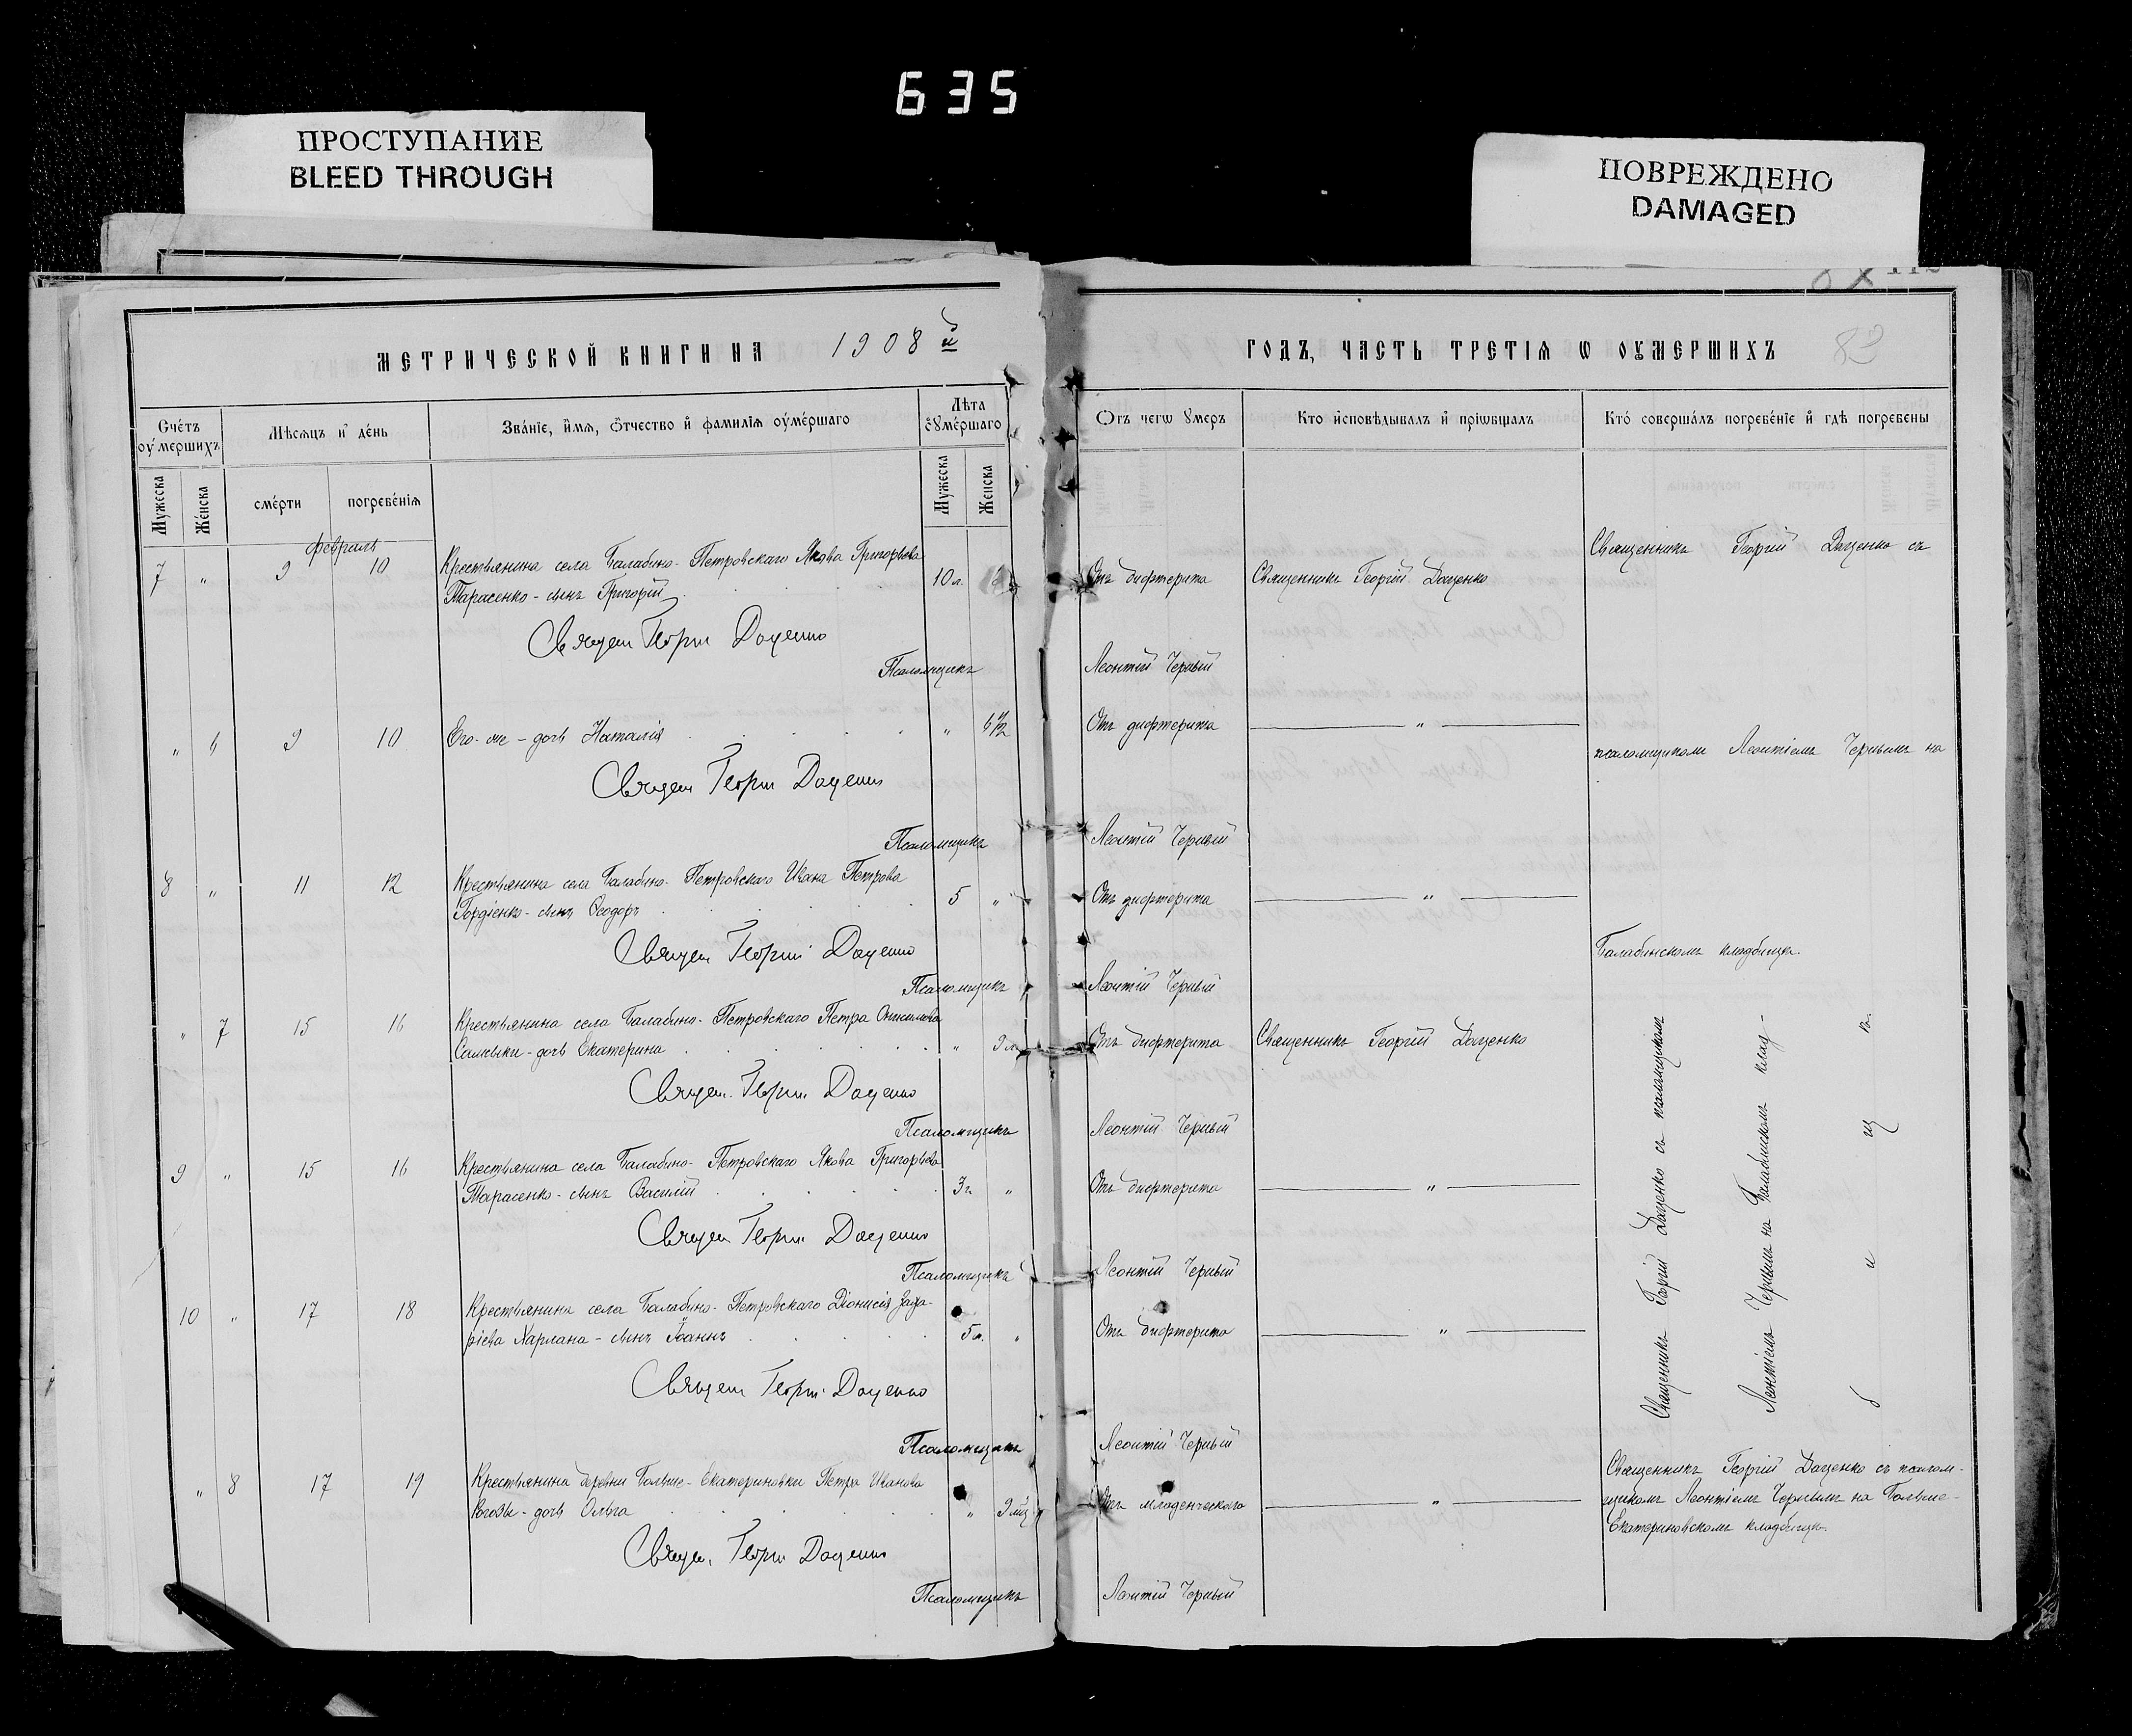 635
ПРОСТУПАНИЕ
BLEED THROUGH
ПОВРЕЖДЕНО
DAMAGED
МЕТРИЧЕСКОЙ КНИГИ НА 1908 й
ГОДЪ, ЧАСТЬ ТРЕТІЯ Ѡ ОУМЕРШИХЪ 83
Счетъ оумершихъ
Мѣсяцъ и день
Званіе, имя, отчество и фамилія оумершаго
Лѣта оумершаго
Отъ чегѡ умеръ
Кто исповѣдывалъ и пріѡбщалъ
Кто совершалъ погребеніе и гдѣ погребены
Мужеска
Женска
смерти
погребенія
Мужеска
Женска
февраль
7 " 9 10 Крестьянина села Балабино-Петровскаго Якова Григорьева
Тарасенко - сынъ Григорій 10 л. Отъ дифтерита Священникъ Георгій Даценко
Священникъ Георгій Даценко съ
Священ Георгій Даценко
Псаломщикъ Леонтій Черный
" 6 9 10 Его-же - дочь Наталія " 6 1/2 Отъ дифтерита "
псаломщикомъ Леонтіемъ Чернымъ на
Священ Георгій Даценко
Псаломщикъ Леонтій Черный
8 " 11 12 Крестьянина села Балабино-Петровскаго Ивана Петрова
Гордіенко - сынъ Ѳеодоръ 5 " Отъ дифтерита "
Священ Георгій Даценко
Балабинскомъ кладбищѣ.
Псаломщикъ Леонтій Черный
" 7 15 16 Крестьянина села Балабино-Петровскаго Петра Онисимова
дочь Екатерина " 9 л. Отъ дифтерита Священникъ Георгій Даценко
Священ. Георгій Даценко
Псаломщикъ Леонтій Черный
9 " 15 16 Крестьянина села Балабино-Петровскаго Якова Григорьева
Тарасенко - сынъ Василій 3 г. " Отъ дифтерита "
Священ Георгій Даценко
Псаломщикъ Леонтій Черный
10 " 17 18 Крестьянина села Балабино-Петровскаго Діонисія Заха-
ріева Харлана - сынъ Іоаннъ 5 л. " Отъ дифтерита "
Священ Георгій Даценко
Псаломщикъ Леонтій Черный
Священникъ Георгій Даценко съ псаломщикомъ
Леонтіемъ Чернымъ на Балабинскомъ клад-
бищѣ.
" 8 17 19 Крестьянина деревни Больше-Екатериновки Петра Иванова
дочь Ольга " 9 мѣц. Отъ младенческаго "
Священникъ Георгій Даценко съ псалом-
щикомъ Леонтіемъ Чернымъ на Больше-
Екатериновскомъ кладбищѣ.
Священ. Георгій Даценко
Псаломщикъ Леонтій Черный